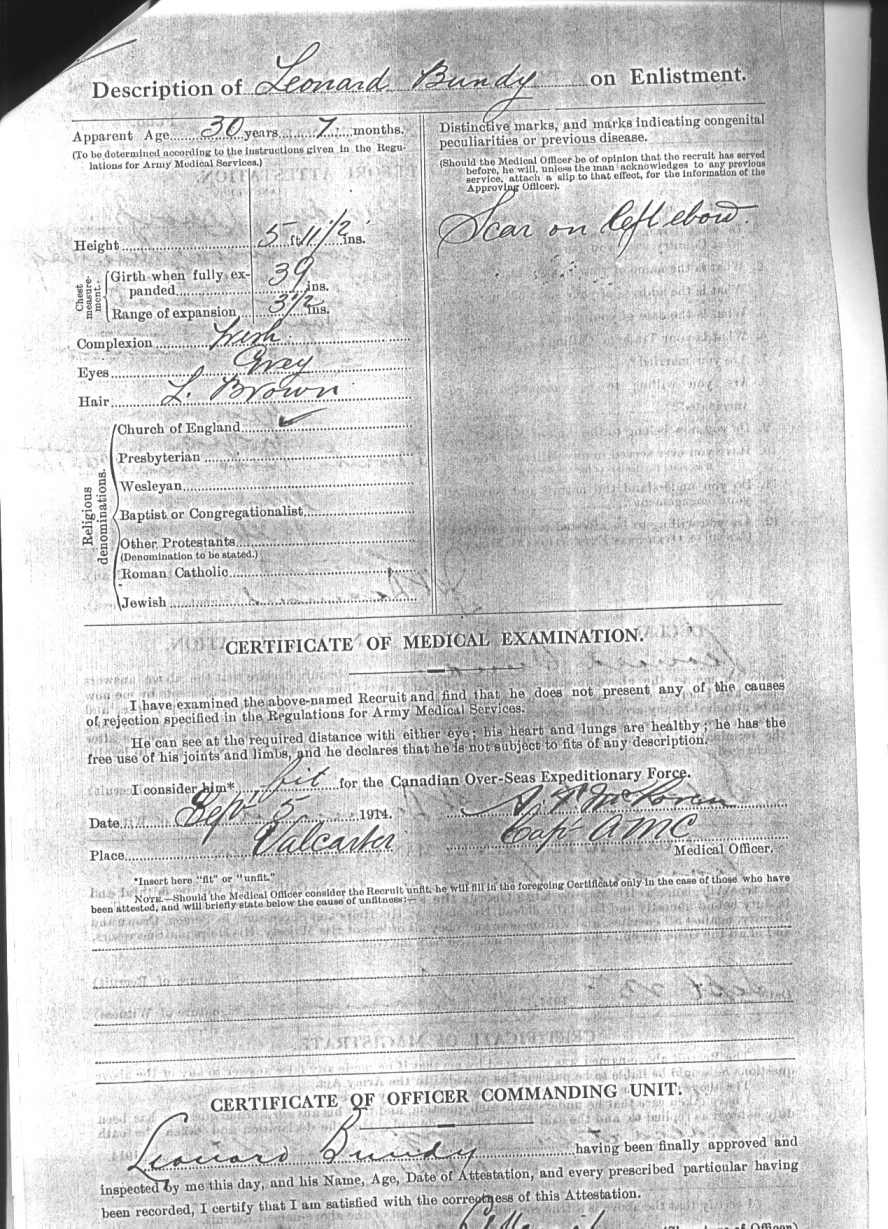 Description of Leonard Bundy on Enlistment.
Apparent Age 30 years 7 months.
(To be determined according to the instructions given in the Regu-
lations for Army Medical Services.)
Height 5 ft. 11 1/2 ins.
Chest measure-ment.
Girth when fully ex-
panded 39 ins.
Range of expansion 3 1/2 ins.
Complexion Fresh
Eyes Grey
Hair L. Brown
Religious denominations.
Church of England ✓
Presbyterian
Wesleyan
Baptist or Congregationalist
Other Protestants
(Denomination to be stated.)
Roman Catholic
Jewish
Distinctive marks, and marks indicating congenital
peculiarities or previous disease.
(Should the Medical Officer be of opinion that the recruit has served
before, he will, unless the man acknowledges to any previous
service, attach a slip to that effect, for the information of the
Approving Officer).
Scar on left ebow.
CERTIFICATE OF MEDICAL EXAMINATION.
I have examined the above-named Recruit and find that he does not present any of the causes
of rejection specified in the Regulations for Army Medical Services.
He can see at the required distance with either eye; his heart and lungs are healthy; he has the
free use of his joints and limbs, and he declares that he is not subject to fits of any description.
I consider him* fit for the Canadian Over-Seas Expeditionary Force.
Date Sept 5 1914.
Place Valcartier
Capt AMC
Medical Officer.
*Insert here "fit" or "unfit."
NOTE.—Should the Medical Officer consider the Recruit unfit, he will fill in the foregoing Certificate only in the case of those who have
been attested, and will briefly state below the cause of unfitness:—
CERTIFICATE OF OFFICER COMMANDING UNIT.
Leonard Bundy having been finally approved and
inspected by me this day, and his Name, Age, Date of Attestation, and every prescribed particular having
been recorded, I certify that I am satisfied with the correctness of this Attestation.
(Signature of Officer)